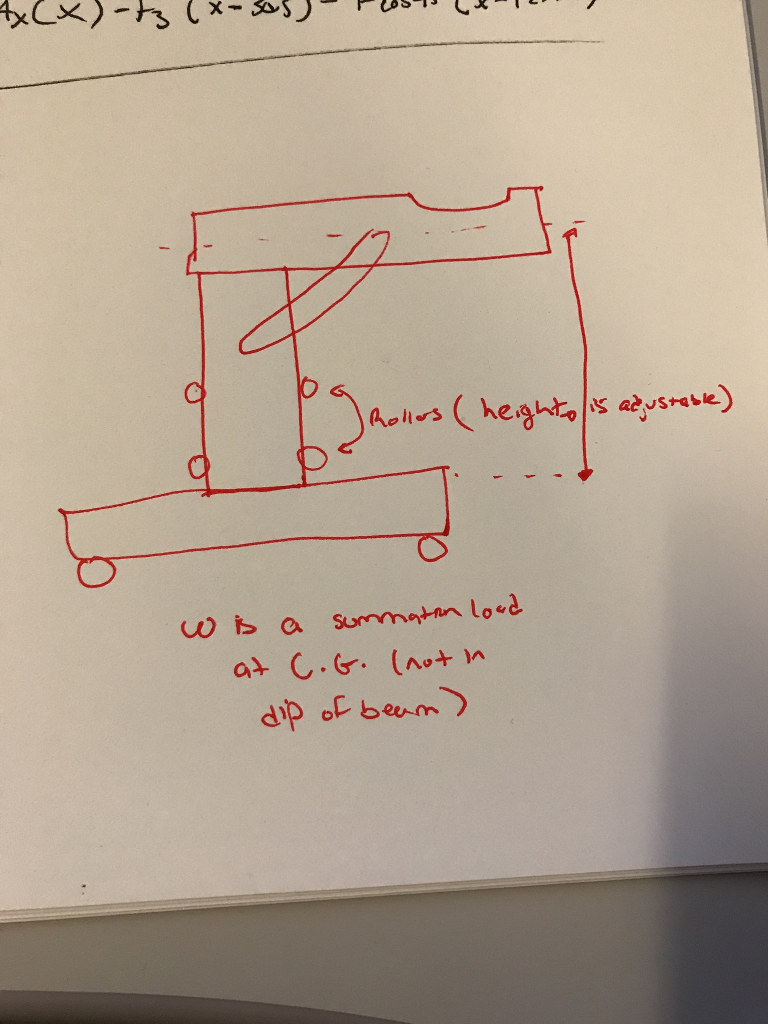 Ax(x) - f3 (x-305) -
Rollers ( height is adjustable)
W is a summation load
at C.G. (not in
dip of beam)